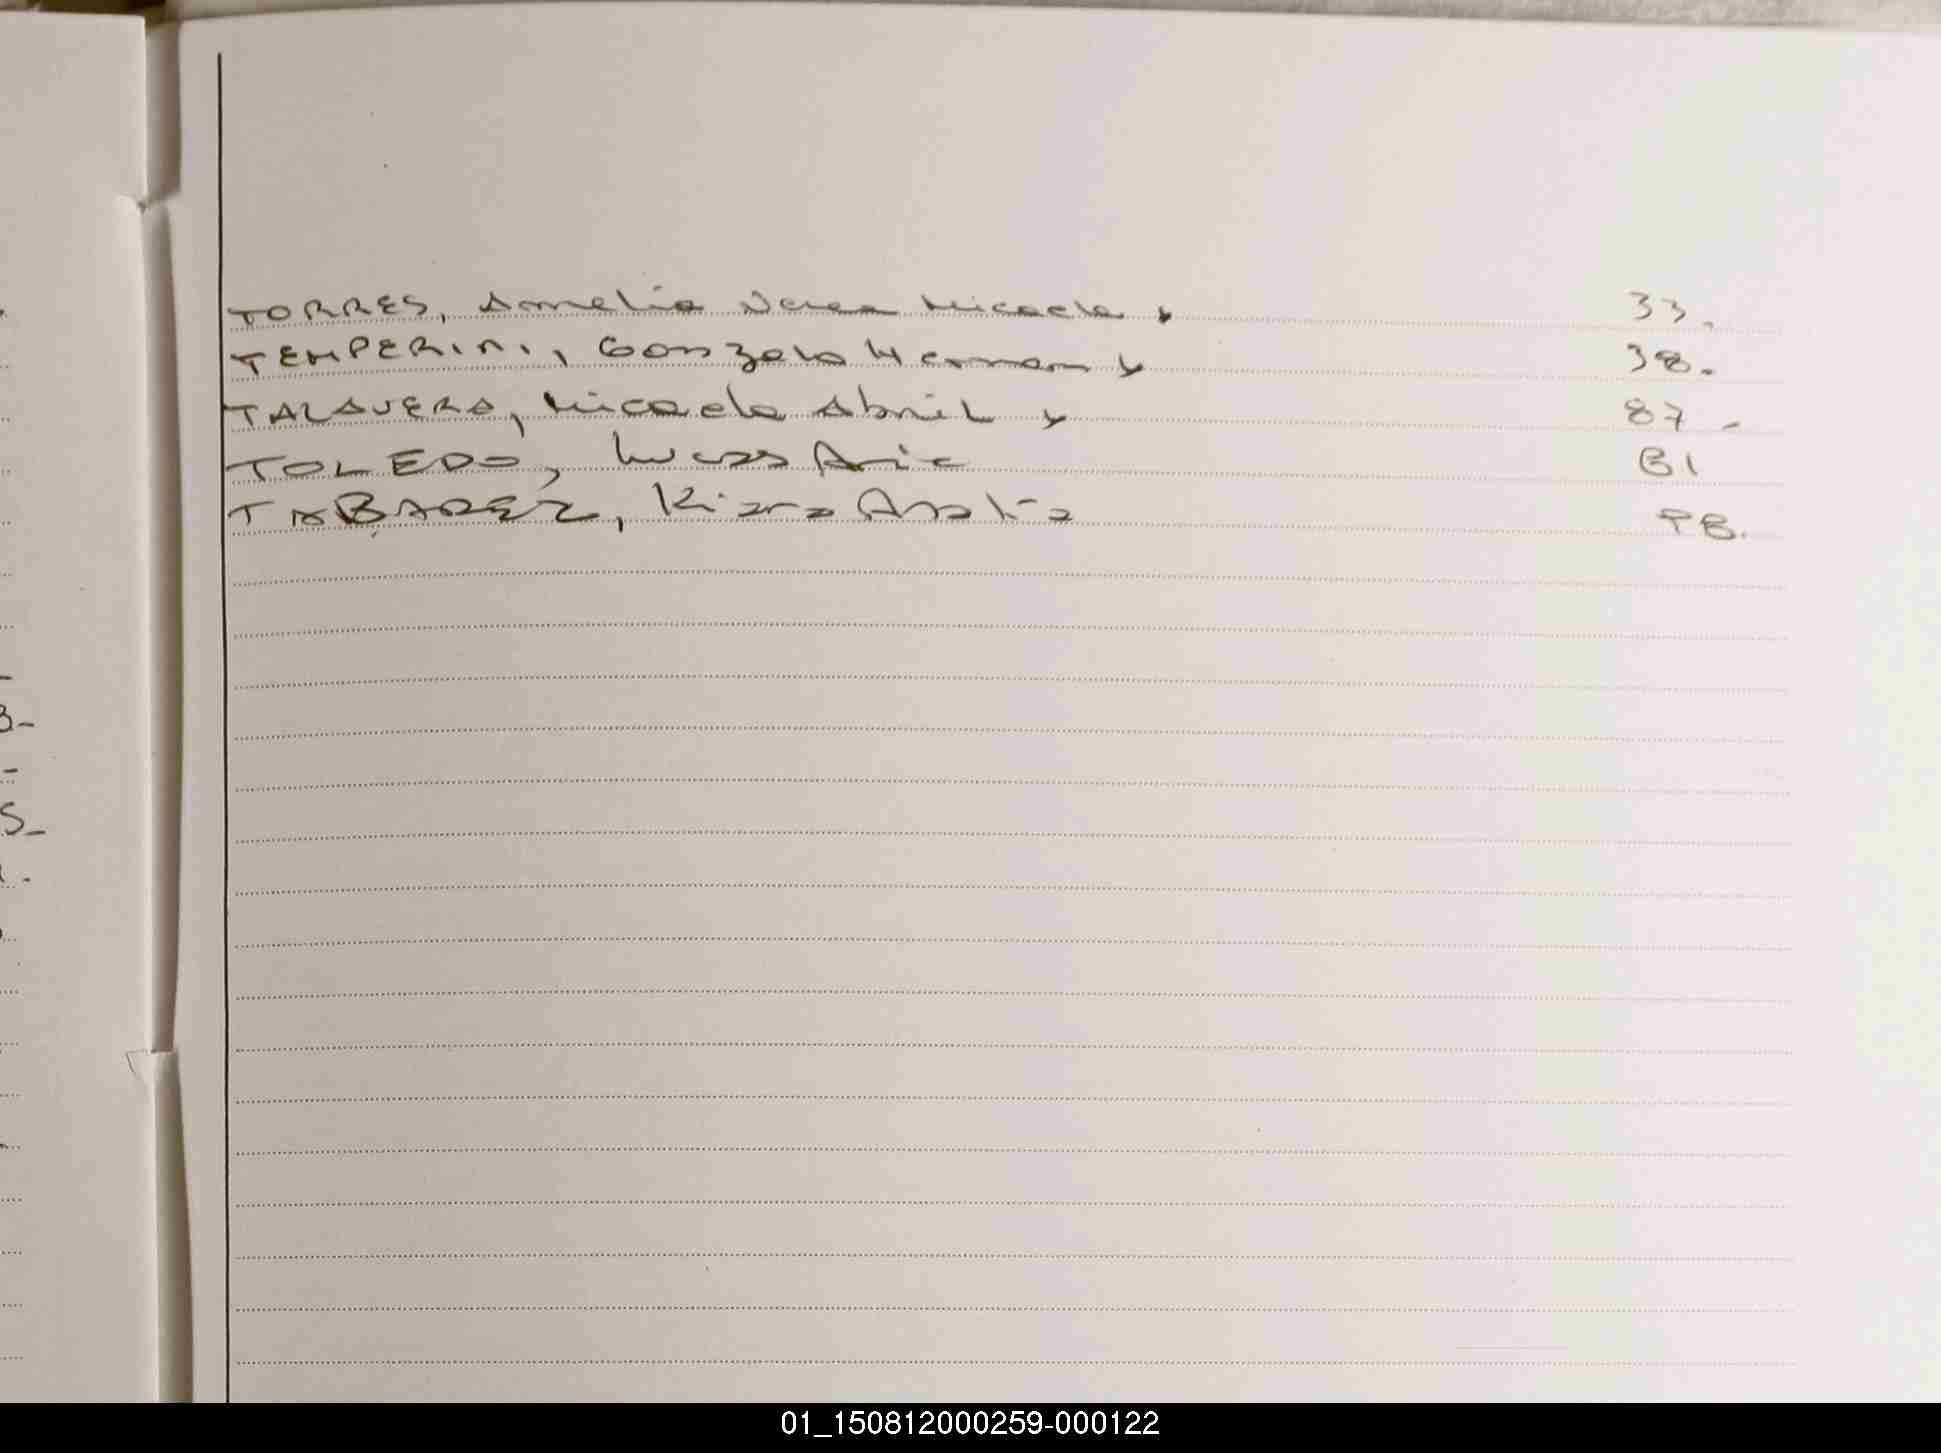 TORRES, Amelia Nerea Micaela 33.
TEMPERINI, Gonzalo Hernan 38.
TALAVERA, Micaela Abril 87-
TOLEDO, Lucas 81
TABAREZ, Kiara 98.
3-
S-
01_150812000259-000122